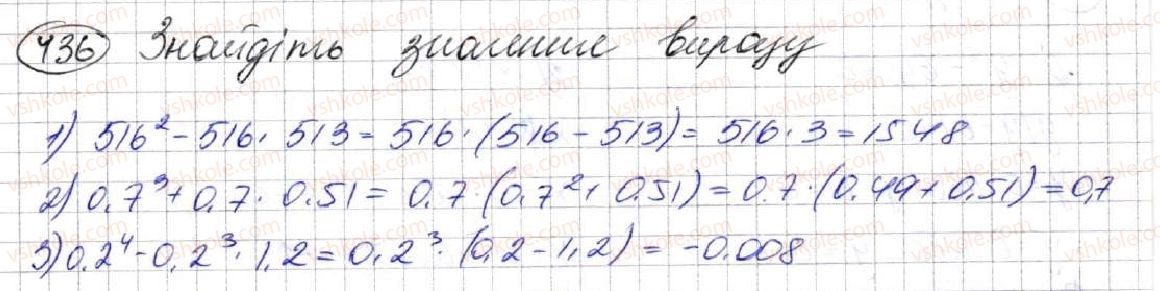 436 Знайдіть значення виразу
1) 516² - 516 · 513 = 516 · (516 - 513) = 516 · 3 = 1548
2) 0.7³ + 0.7 · 0.51 = 0.7 · (0.7² + 0.51) = 0.7 · (0.49 + 0.51) = 0,7
3) 0.2⁴ - 0.2³ · 1,2 = 0,2³ · (0,2 - 1,2) = -0.008